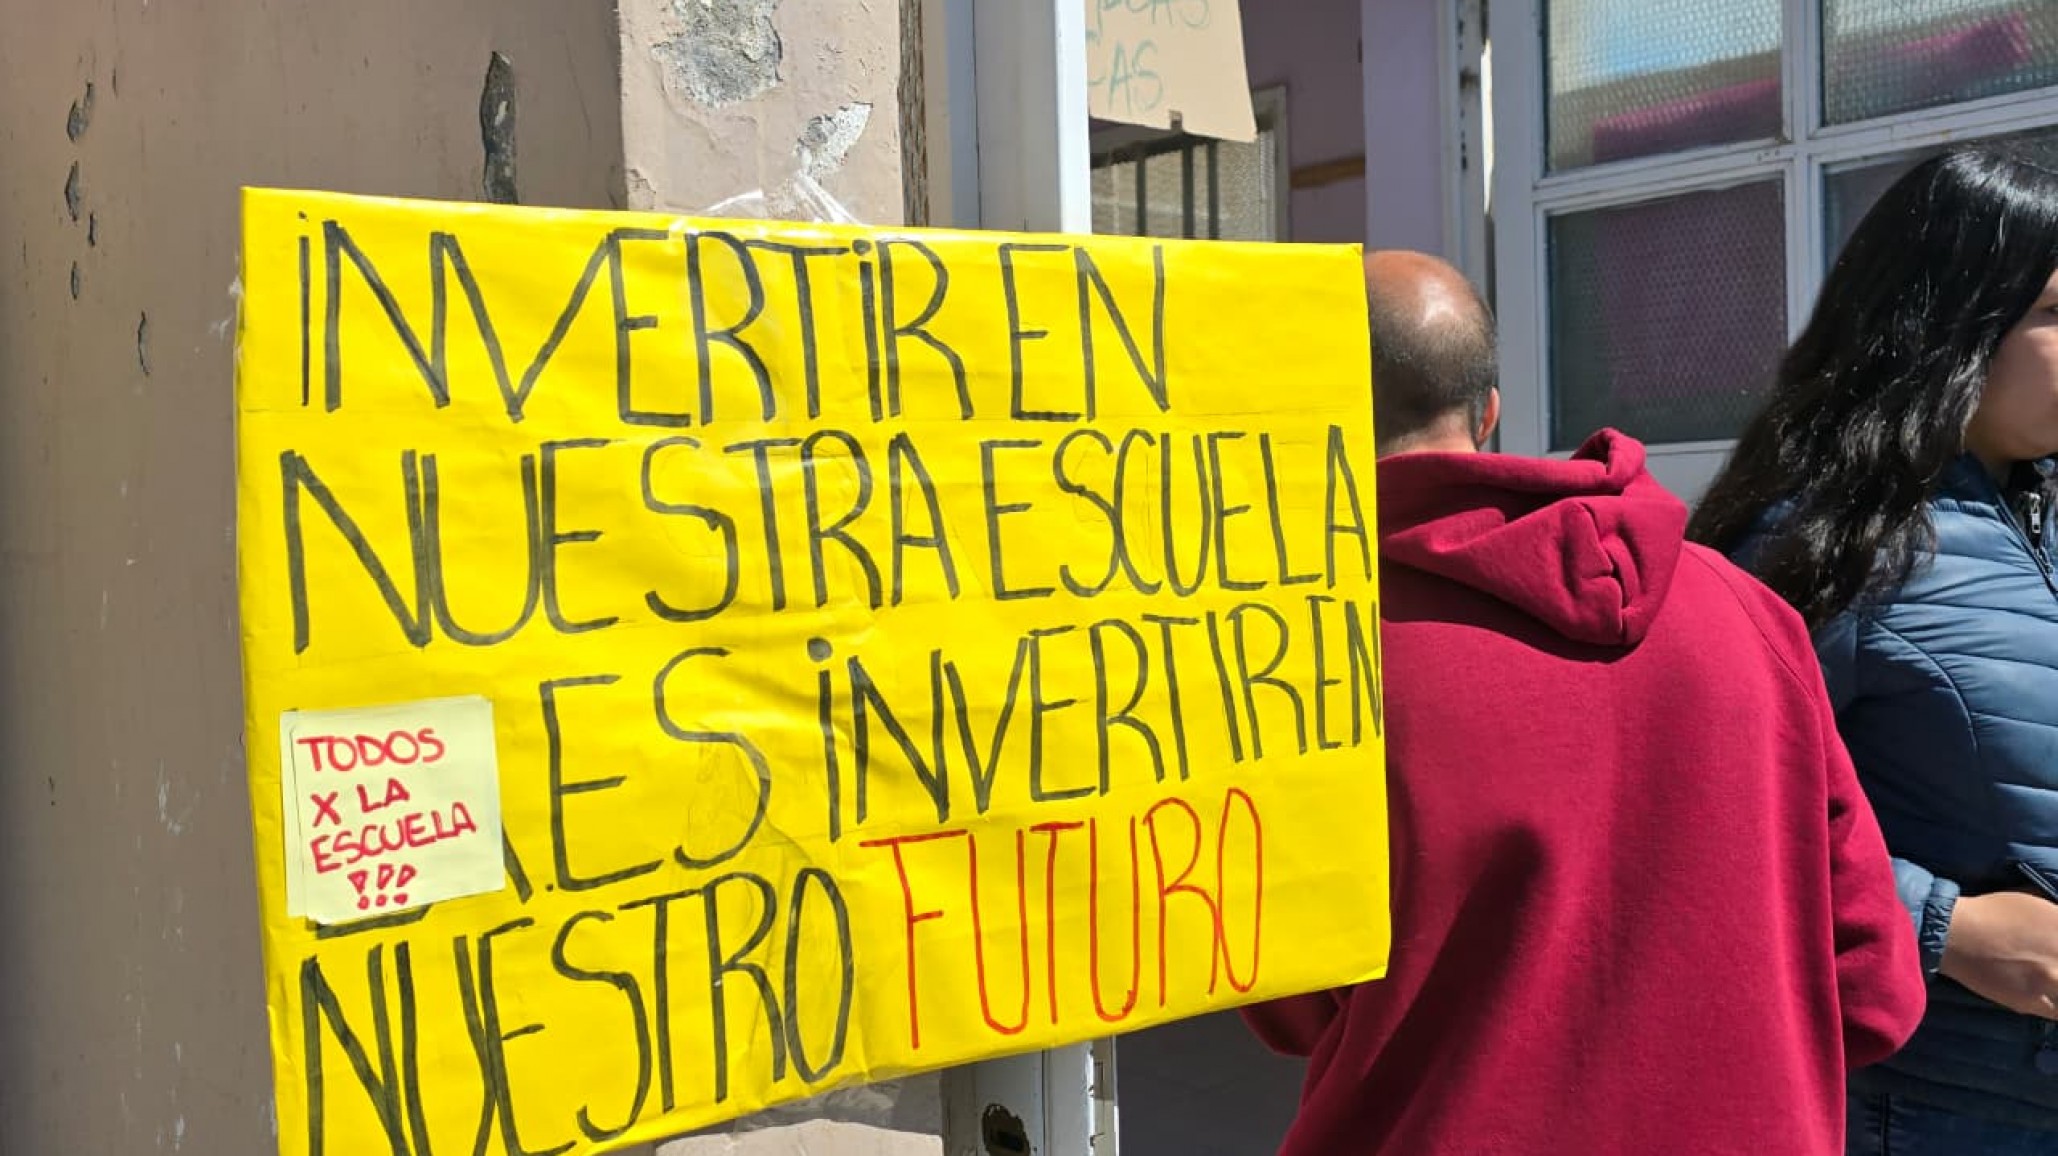 INVERTIR EN
NUESTRA ESCUELA
ES INVERTIR EN
NUESTRO FUTURO
TODOS
X LA
ESCUELA
!!!